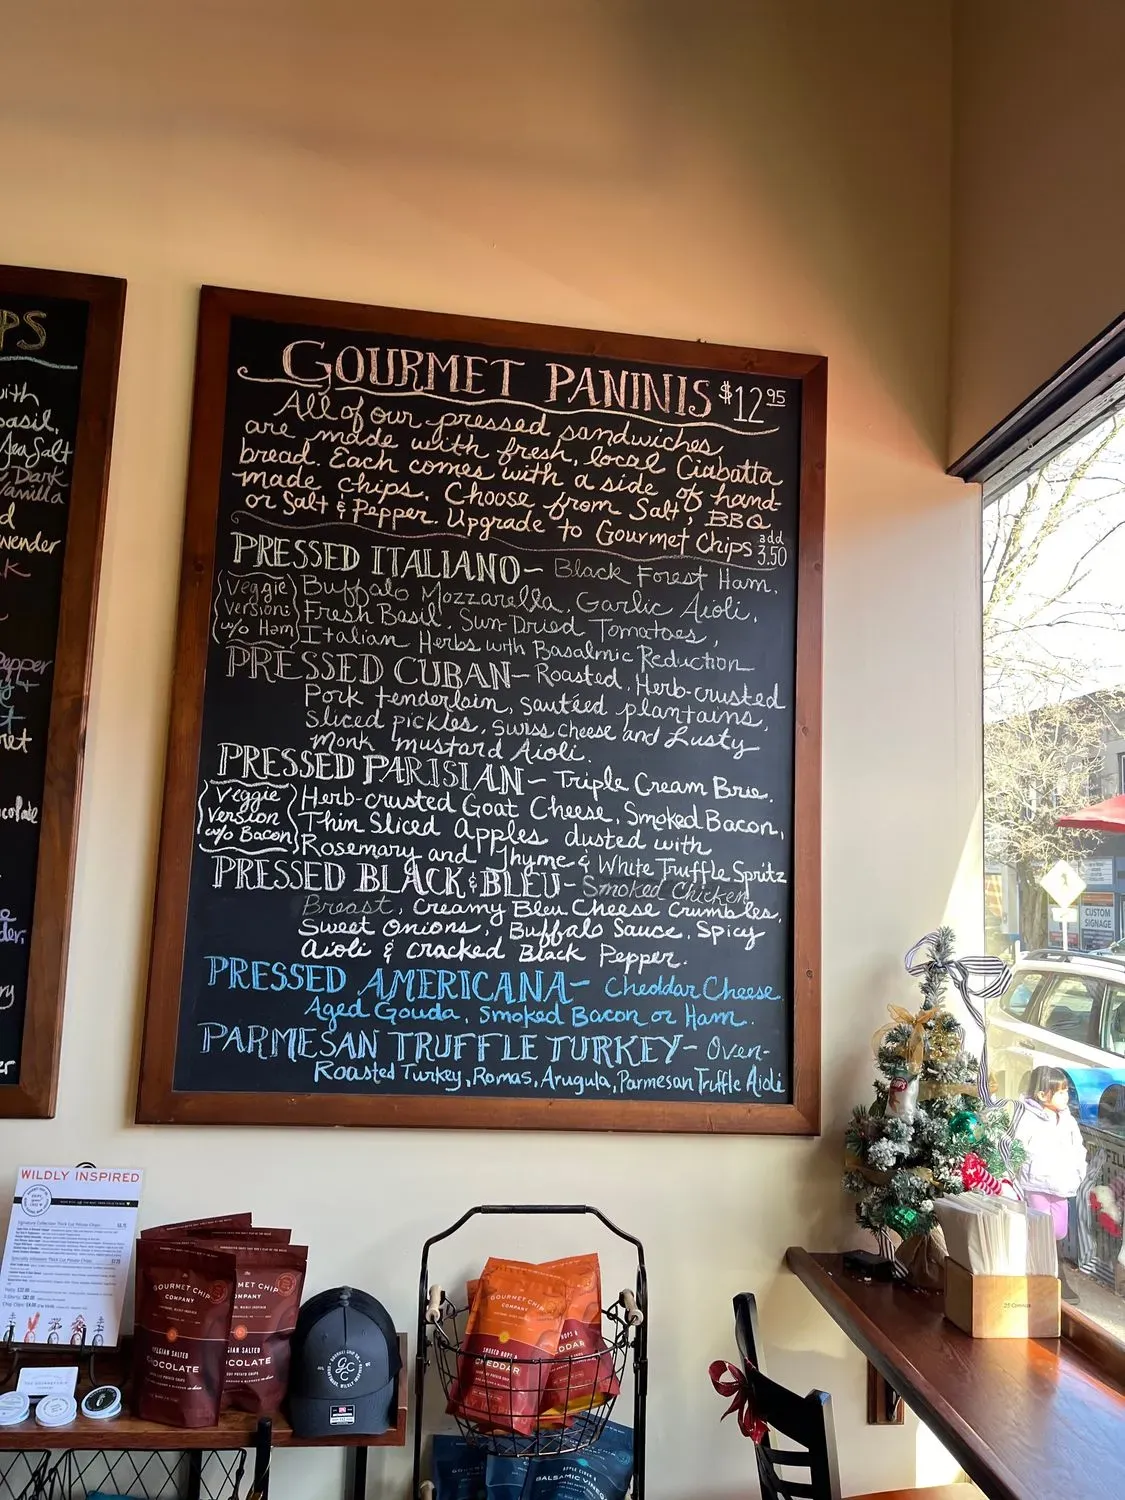 PS
with
Sea Salt
Dark
Vanilla
Pepper
GOURMET PANINIS $12 95
All of our pressed sandwiches,
are made with fresh, local Ciabatta
bread. Each comes with a side of hand-
made chips. Choose from Salt, BBQ
or Salt & Pepper. Upgrade to Gourmet Chips add 3.50
PRESSED ITALIANO- Black Forest Ham,
(Veggie Version: w/o Ham)
Buffalo Mozzarella, Garlic Aioli,
Fresh Basil, Sun-Dried Tomatoes,
Italian Herbs with Basalmic Reduction
PRESSED CUBAN- Roasted, Herb-crusted
Pork tenderloin, sautéed plantains,
sliced pickles, swiss cheese and Lusty
Monk mustard Aioli.
PRESSED PARISIAN- Triple Cream Brie.
(Veggie Version w/o Bacon)
Herb-crusted Goat Cheese, Smoked Bacon,
Thin Sliced Apples dusted with
Rosemary and Thyme & White Truffle Spritz
PRESSED BLACK & BLEU- Smoked Chicken
Breast, Creamy Bleu Cheese Crumbles,
Sweet Onions, Buffalo Sauce, Spicy
Aioli & Cracked Black Pepper.
PRESSED AMERICANA- Cheddar Cheese,
Aged Gouda, Smoked Bacon or Ham.
PARMESAN TRUFFLE TURKEY- Oven-
Roasted Turkey, Romas, Arugula, Parmesan Truffle Aioli
CUSTOM
SIGNAGE
WILDLY INSPIRED
GOURMET CHIP
COMPANY
BELGIAN SALTED
CHOCOLATE
GOURMET CHIP
COMPANY
SALTED
CHOCOLATE
GCC
GOURMET CHIP
COMPANY
SMOKED HOPS &
CHEDDAR
HOPS &
CHEDDAR
BALSAMIC VINEGAR